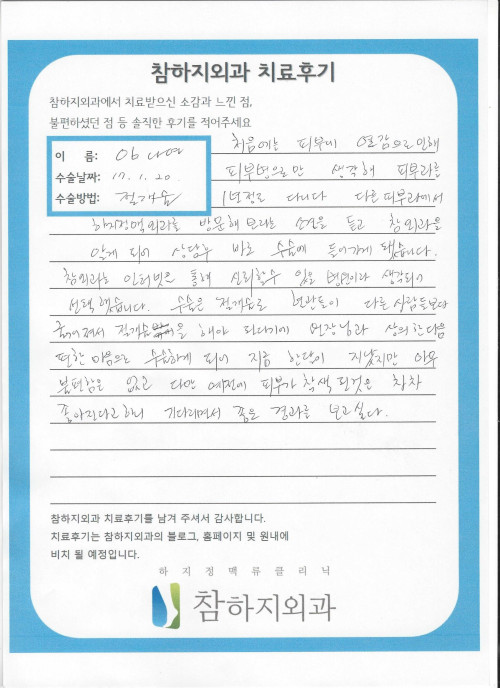 참하지외과 치료후기
참하지외과에서 치료받으신 소감과 느낀 점,
불편하셨던 점 등 솔직한 후기를 적어주세요
이 름:
수술날짜: 17. 1. 20.
수술방법: 절개술
처음에는 피부에 열감으로 인해
피부병으로만 생각해 피부과를
1년정도 다니다 다른 피부과에서
하지정맥외과를 방문해 보라는 소견을 듣고 참외과를
알게 되어 상담후 바로 수술에 들어가게 됐습니다.
참외과는 인터넷을 통해 신뢰할수 있을 병원이라 생각되어
선택 했습니다. 수술은 절개술로 혈관들이 다른 사람들보다
굵어져서 절개술을 해야 된다기에 원장님과 상의한 다음
편한 마음으로 수술하게 되어 지금 한달이 지났지만 아무
불편함은 없고 다만 예전에 피부가 착색 된것은 차차
좋아진다고 하니 기다리면서 좋은 결과를 보고싶다.
참하지외과 치료후기를 남겨 주셔서 감사합니다.
치료후기는 참하지외과의 블로그, 홈페이지 및 원내에
비치 될 예정입니다.
하지정맥류클리닉
참하지외과